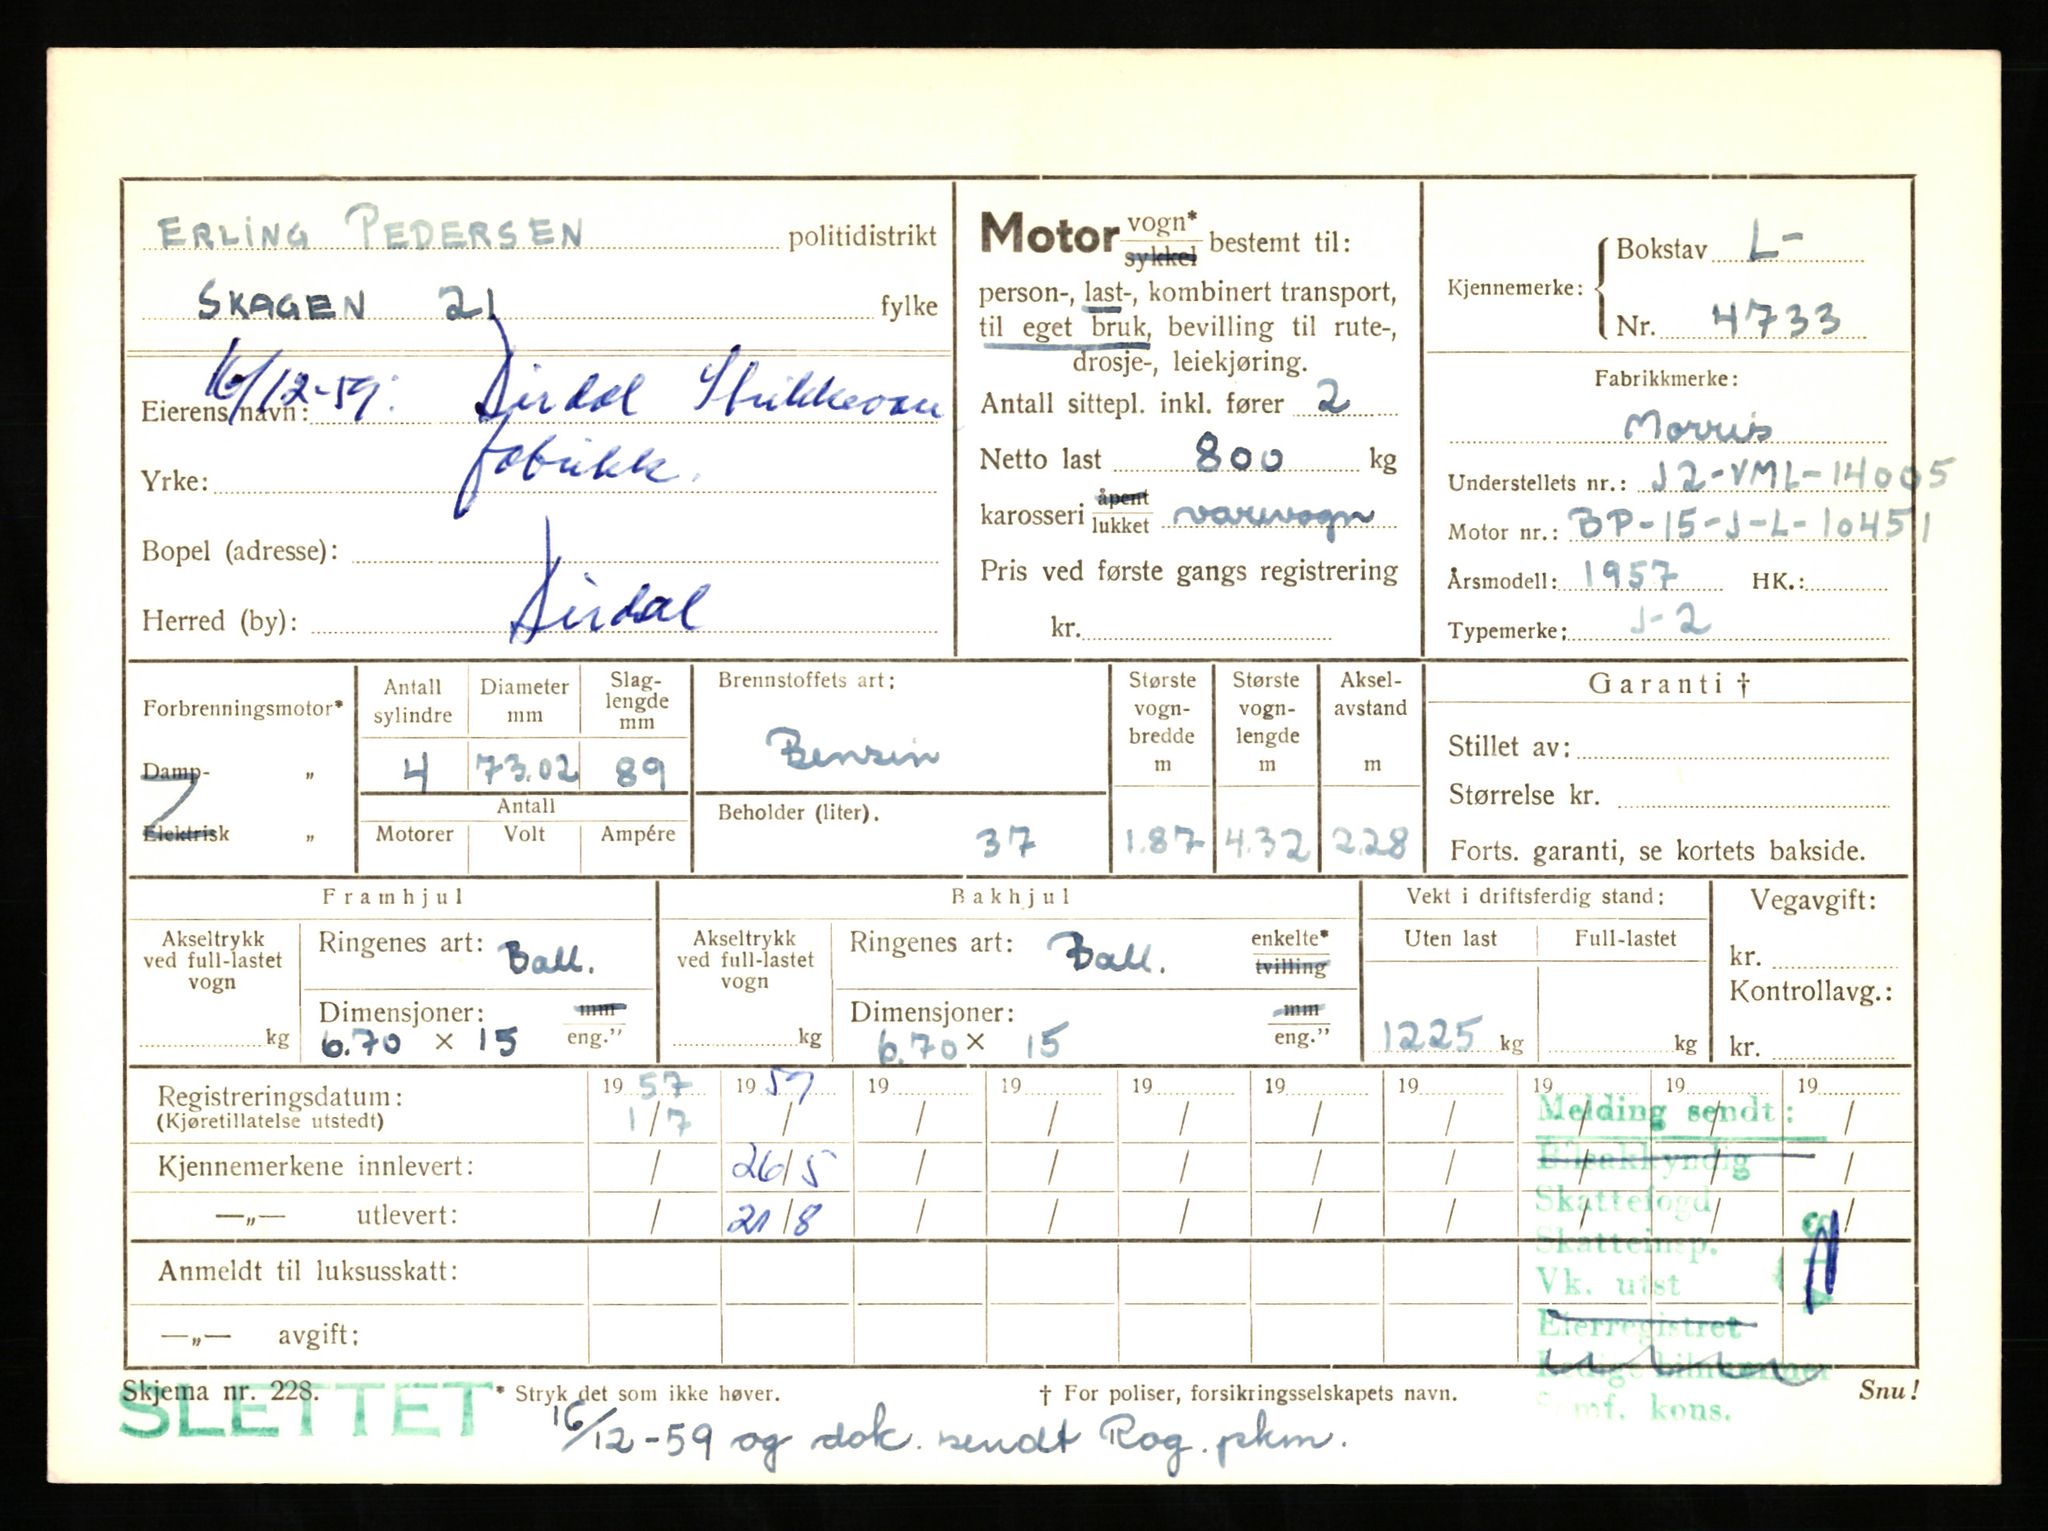 ERLING PEDERSEN politidistrikt
SKAGEN 21 fylke
Eierens navn: 16/12-59: Dirdal Strikkevare
fabrikk.
Yrke:
Bopel (adresse):
Herred (by): Dirdal
Motor vogn* sykkel bestemt til:
person-, last-, kombinert transport,
til eget bruk, bevilling til rute-,
drosje-, leiekjøring.
Antall sittepl. inkl. fører 2
Netto last 800 kg
karosseri åpent lukket varevogn
Pris ved første gangs registrering
kr.
Kjennemerke: Bokstav L-
Nr. 4733
Fabrikkmerke:
Morris
Understellets nr.: J2-VML-14005
Motor nr.: BP-15-J-L-10451
Årsmodell: 1957 HK.:
Typemerke: J-2
Forbrenningsmotor*
Damp- „
Elektrisk „
Antall sylindre
4
Diameter mm
73.02
Slag-
lengde
mm
89
Antall
Motorer Volt Ampére
Brennstoffets art:
Bensin
Beholder (liter).
37
Største
vogn-
bredde
m
1.87
Største
vogn-
lengde
m
4.32
Aksel-
avstand
m
2.28
Garanti †
Stillet av:
Størrelse kr.
Forts. garanti, se kortets bakside.
Framhjul
Akseltrykk
ved full-lastet
vogn
kg
Ringenes art: Ball.
Dimensjoner: mm
6.70 × 15 eng."
Bakhjul
Akseltrykk
ved full-lastet
vogn
kg
Ringenes art: Ball. enkelte*
tvilling
Dimensjoner: mm
6.70 × 15 eng."
Vekt i driftsferdig stand:
Uten last Full-lastet
1225 kg kg
Vegavgift:
kr.
Kontrollavg.:
kr.
Registreringsdatum: 19 57 19 59 19 19 19 19 19 19 19 19
(Kjøretillatelse utstedt) 1/7 / / / / / / / / /
Kjennemerkene innlevert: / 26/5 / / / / / / / /
—„— utlevert: / 21/8 / / / / / / / /
Anmeldt til luksusskatt:
—„— avgift:
Melding sendt:
Bilsakkyndig
Skattefogd
Skatteinsp.
Vk. utst
Eierregistret
Ledige bilnummer
Samf. kons.
Skjema nr. 228. * Stryk det som ikke høver. † For poliser, forsikringsselskapets navn. Snu!
SLETTET
16/12-59 og dok. sendt Rog. pkm.